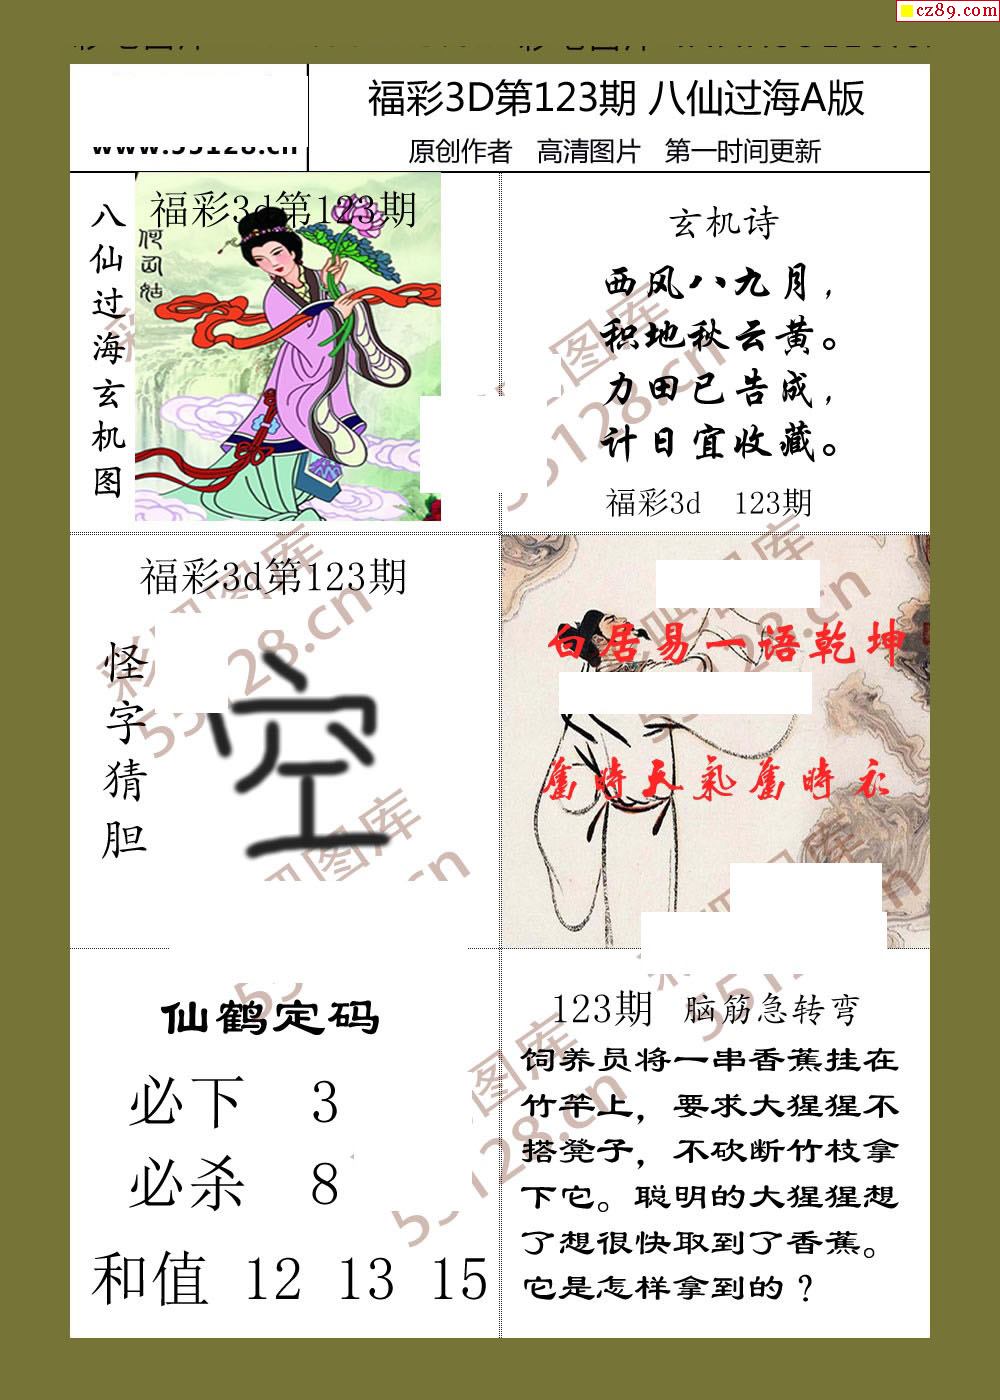 cz89.com
www.55128.cn
福彩3D第123期 八仙过海A版
原创作者 高清图片 第一时间更新
八仙过海玄机图
福彩3d第123期
何仙姑
玄机诗
西风八九月，
积地秋云黄。
力田已告成，
计日宜收藏。
福彩3d 123期
福彩3d第123期
怪字猜胆
空
白居易一语乾坤
舊時天氣舊時衣
仙鹤定码
必下 3
必杀 8
和值 12 13 15
123期 脑筋急转弯
饲养员将一串香蕉挂在
竹竿上，要求大猩猩不
搭凳子，不砍断竹枝拿
下它。聪明的大猩猩想
了想很快取到了香蕉。
它是怎样拿到的？
图库
55128.cn